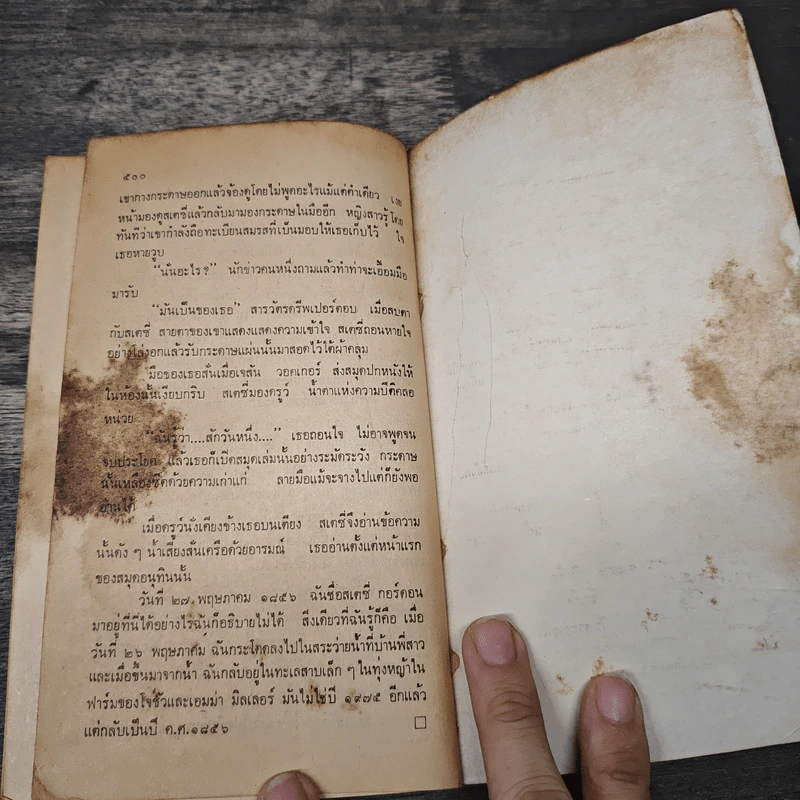 ๕๐๐
เขากางกระดาษออกแล้วจ้องดูโดยไม่พูดอะไรแม้แต่คำเดียว เงย
หน้ามองดูสเตซี่แล้วกลับมามองกระดาษในมืออีก หญิงสาวรู้โดย
ทันทีว่าเขากำลังถือทะเบียนสมรสที่เป็นมอบให้เธอเก็บไว้ ใจ
เธอหายวูบ
“นั่นอะไร?” นักข่าวคนหนึ่งถามแล้วทำท่าจะเอื้อมมือ
มารับ
“มันเป็นของเธอ” สารวัตรครีพเปอร์ตอบ เมื่อสบตา
กับสเตซี่ สายตาของเขาแสดงแสดงความเข้าใจ สเตซี่ถอนหายใจ
อย่างโล่งอกแล้วรับกระดาษแผ่นนั้นมาสอดไว้ใต้ผ้าคลุม
มือของเธอสั่นเมื่อเจสัน วอคเกอร์ ส่งสมุดปกหนังให้
ในห้องนั้นเงียบกริบ สเตซี่มองดรูว์ น้ำตาแห่งความปีติคลอ
หน่วย
“ฉันรู้ว่า....สักวันหนึ่ง....” เธอถอนใจ ไม่อาจพูดจน
จบประโยค แล้วเธอก็เปิดสมุดเล่มนั้นอย่างระมัดระวัง กระดาษ
นั้นเหลืองซีดด้วยความเก่าแก่ ลายมือแม้จะจางไปแต่ก็ยังพอ
อ่านได้
เมื่อดรูว์นั่งเคียงข้างเธอบนเตียง สเตซี่จึงอ่านข้อความ
นั้นดัง ๆ น้ำเสียงสั่นเครือด้วยอารมณ์ เธออ่านตั้งแต่หน้าแรก
ของสมุดอนุทินนั้น
วันที่ ๒๗ พฤษภาคม ๑๘๕๖ ฉันชื่อสเตซี่ กอร์ดอน
มาอยู่ที่นี่ได้อย่างไรฉันก็อธิบายไม่ได้ สิ่งเดียวที่ฉันรู้ก็คือ เมื่อ
วันที่ ๒๖ พฤษภาคม ฉันกระโดดลงไปในสระว่ายน้ำที่บ้านพี่สาว
และเมื่อขึ้นมาจากน้ำ ฉันกลับอยู่ในทะเลสาบเล็ก ๆ ในทุ่งหญ้าใน
ฟาร์มของโจชัวและเอมม่า มิลเลอร์ มันไม่ใช่ปี ๑๙๗๕ อีกแล้ว
แต่กลับเป็นปี ค.ศ.๑๘๕๖